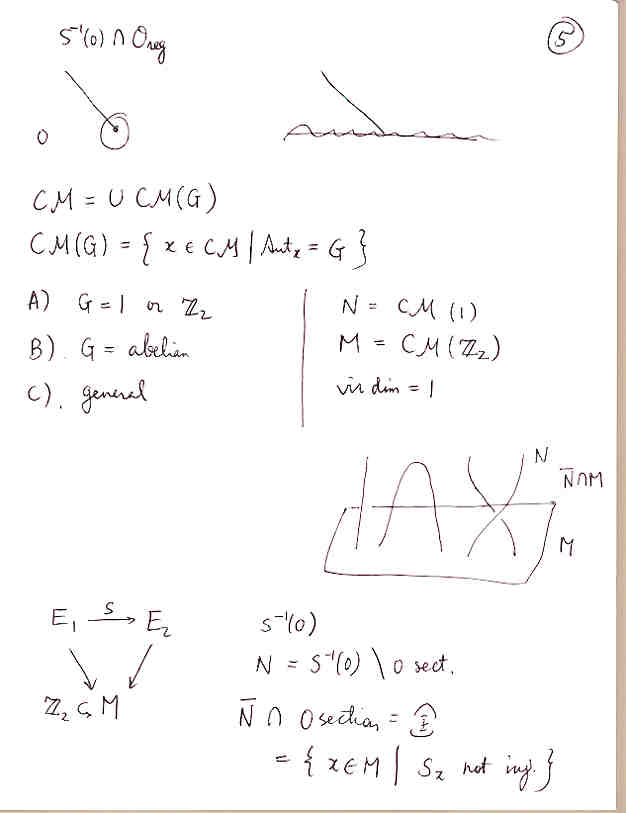 S⁻¹(0) ∩ O_reg
⑤
0
CM = ∪ CM(G)
CM(G) = { x ∈ CM | Aut_x = G }
A) G = 1 or ℤ₂
B). G = abelian
C). general
N = CM (1)
M = CM(ℤ₂)
vir dim = 1
N
N̄∩M
M
E₁ —S→ E₂
ℤ₂ ↺ M
S⁻¹(0)
N = S⁻¹(0) \ 0 sect.
N̄ ∩ 0 section =
= { x ∈ M | S_x not inj. }